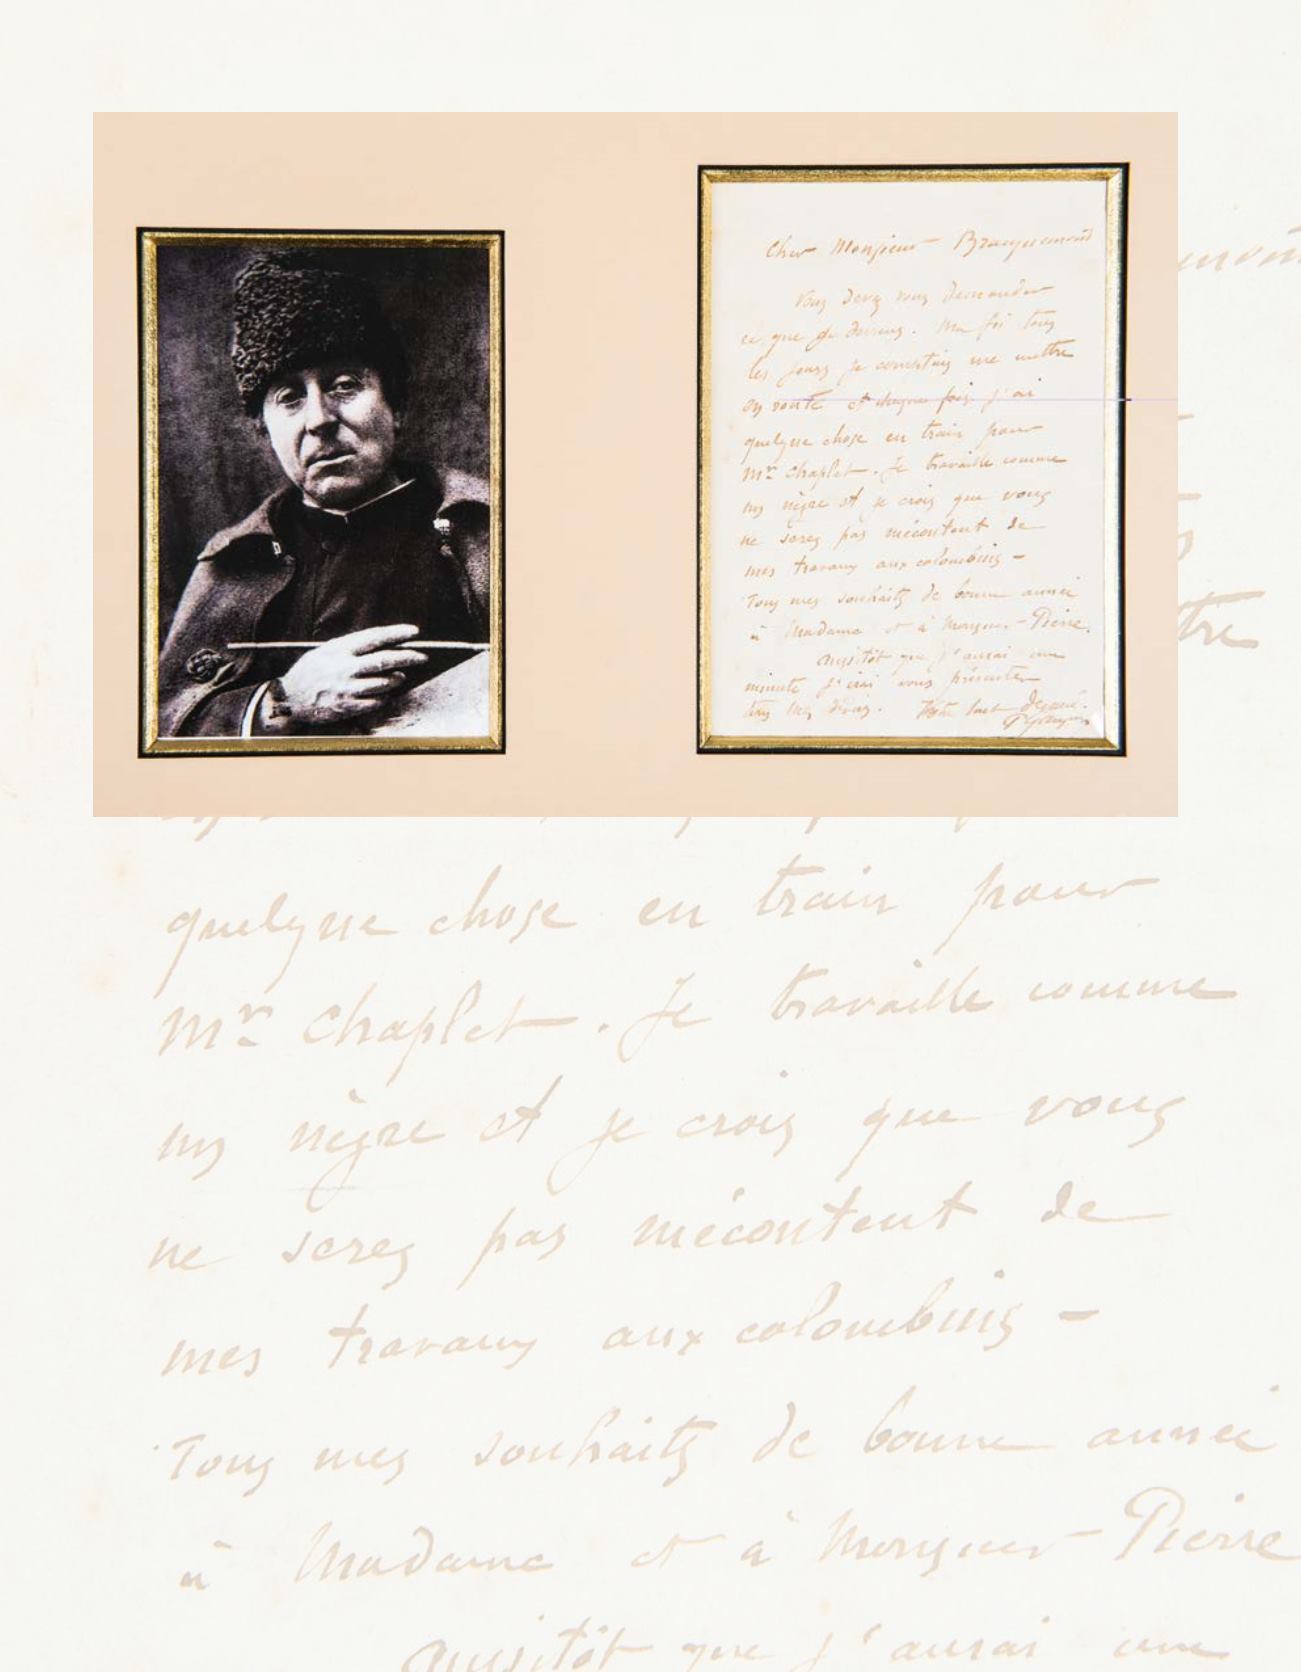 Cher Monsieur Bracquemond
Vous devez vous demander
ce que je deviens. Ma foi tous
les jours je comptais me mettre
en route et chaque fois j'ai
quelque chose en train pour
Mr Chaplet. Je travaille comme
un nègre et je crois que vous
ne serez pas mécontent de
mes travaux aux colombins -
Tous mes souhaits de bonne année
à Madame et à Monsieur Pierre.
aussitôt que j'aurai une
minute j'irai vous présenter
tous mes devoirs. Votre tout dévoué.
P Gauguin
quelque chose en train pour
Mr Chaplet. Je travaille comme
un nègre et je crois que vous
ne serez pas mécontent de
mes travaux aux colombins -
Tous mes souhaits de bonne année
à Madame et à Monsieur Pierre
aussitôt que j'aurai une